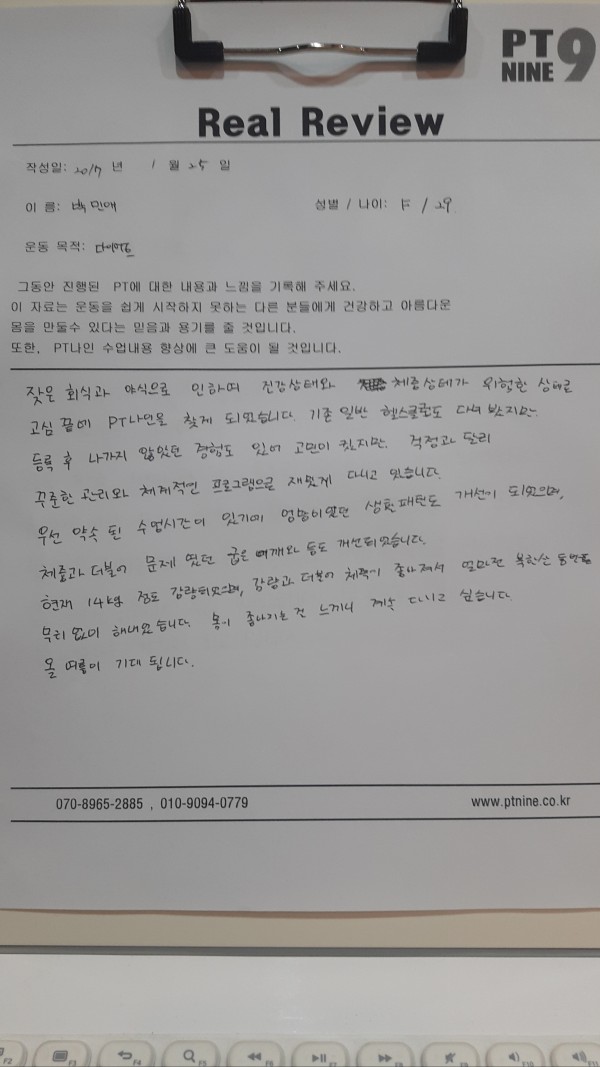 PT NINE 9
Real Review
작성일: 2017 년 1 월 25 일
이 름: 백민애 성별 / 나이: F / 29
운동 목적: 다이어트
그동안 진행된 PT에 대한 내용과 느낌을 기록해 주세요.
이 자료는 운동을 쉽게 시작하지 못하는 다른 분들에게 건강하고 아름다운
몸을 만들수 있다는 믿음과 용기를 줄 것입니다.
또한, PT나인 수업내용 향상에 큰 도움이 될 것입니다.
잦은 회식과 야식으로 인하여 건강상태와 체중상태가 위험한 상태로
고심 끝에 PT나인을 찾게 되었습니다. 기존 일반 헬스클럽도 다녀 봤지만.
등록 후 나가지 않았던 경험도 있어 고민이 컸지만. 걱정과 달리
꾸준한 관리와 체계적인 프로그램으로 재밌게 다니고 있습니다.
우선 약속 된 수업시간이 있기에 엉망이었던 생활패턴도 개선이 되었으며,
체중과 더불어 문제 였던 굽은 어깨와 등도 개선되었습니다.
현재 14kg 정도 감량되었으며, 감량과 더불어 체력이 좋아져서 얼마전 북한산 등반을
무리 없이 해내었습니다. 몸이 좋아지는 걸 느끼니 계속 다니고 싶습니다.
올 여름이 기대 됩니다.
070-8965-2885 , 010-9094-0779 www.ptnine.co.kr
F2 F3 F4 F5 F6 F7 F8 F9 F10 F11